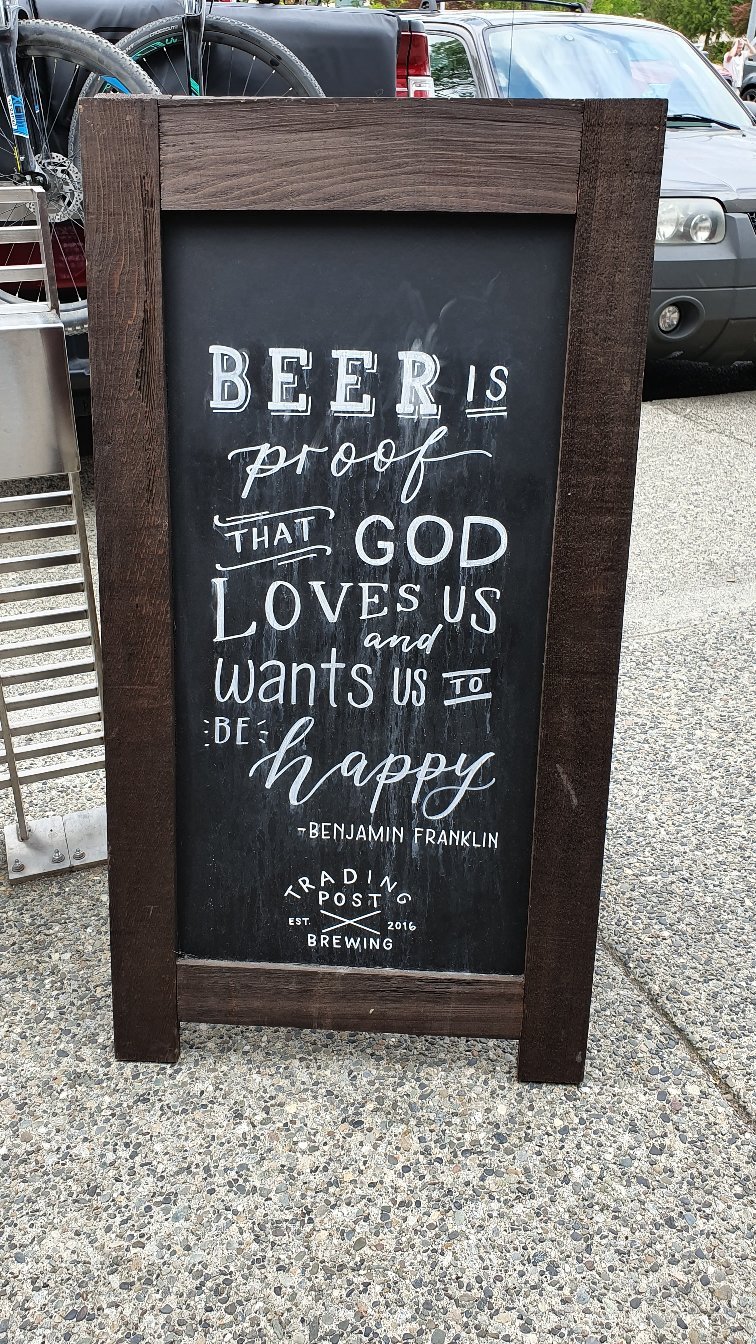 BEER IS
proof
THAT GOD
LOVES US
and
wants US TO
BE happy
-BENJAMIN FRANKLIN
TRADING
POST
EST. 2016
BREWING